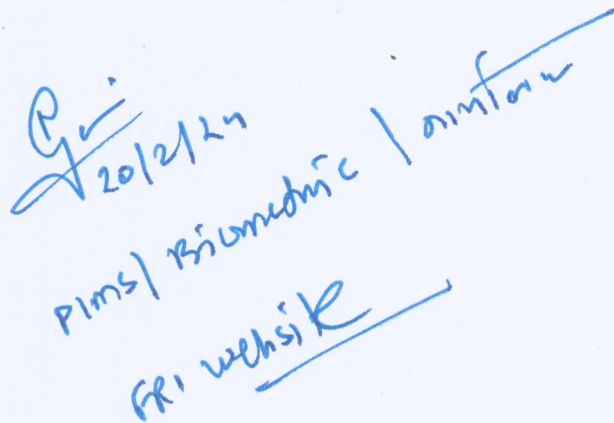 20/2/24
PIMS/ Biometric /
FRI website